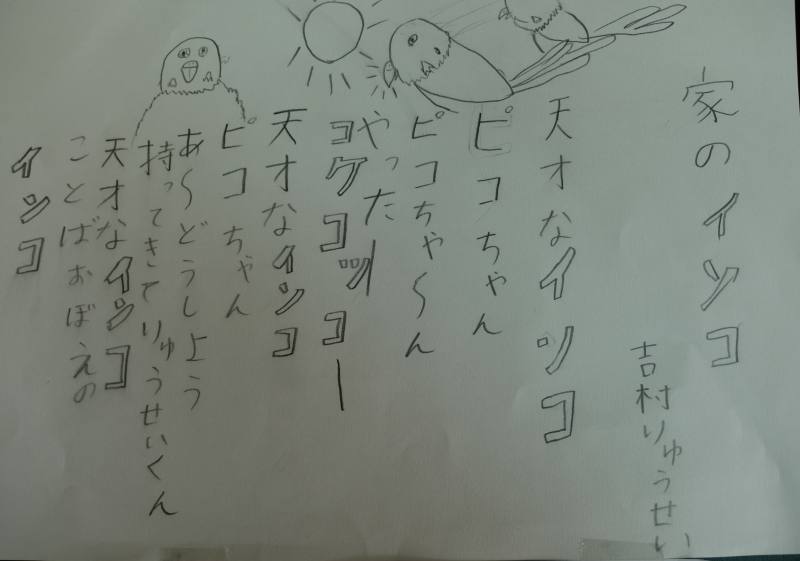 家のインコ
吉村りゅうせい
天才なインコ
ピコちゃん
ピコちゃ〜ん
やったー
コケコッコー
天才なインコ
ピコちゃん
あ〜どうしよう
持ってきてりゅうせいくん
天才なインコ
ことばおぼえの
インコ